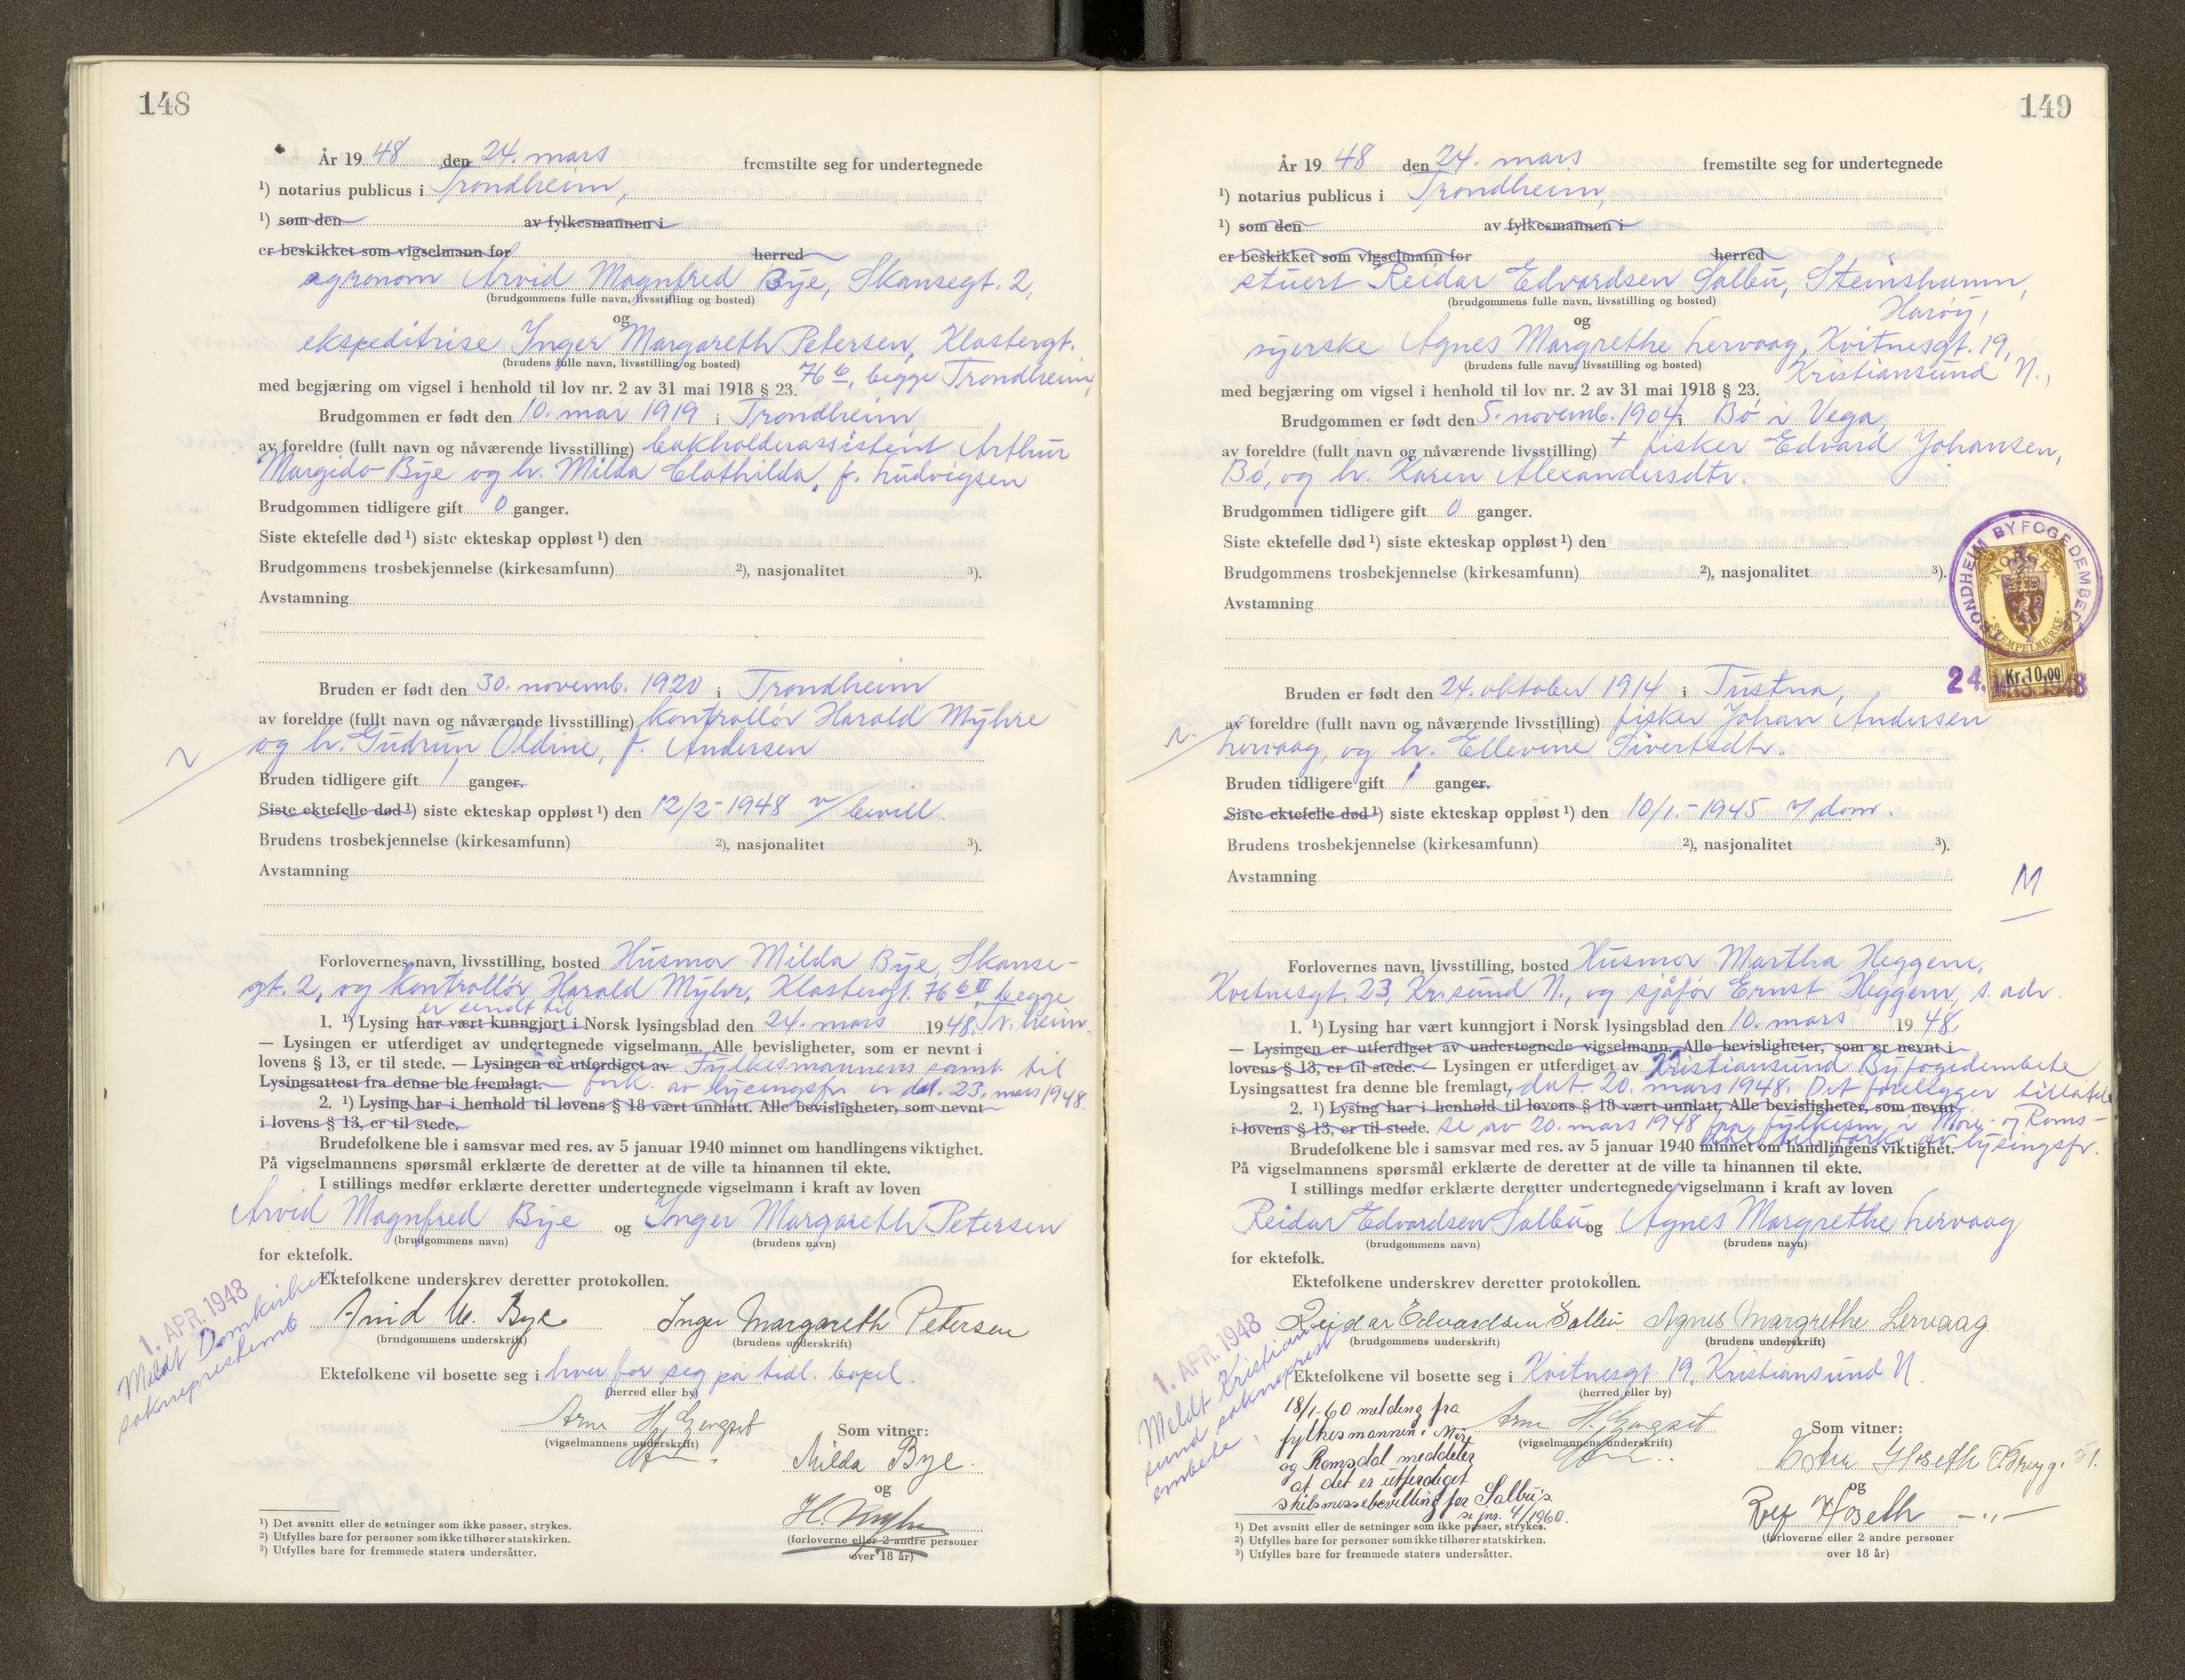 148
År 19 48 den 24. mars fremstilte seg for undertegnede
¹) notarius publicus i Trondheim,
¹) som den av fylkesmannen i
er beskikket som vigselmann for herred
agronom Arvid Magnfred Bye, Skansegt. 2,
(brudgommens fulle navn, livsstilling og bosted)
og
ekspeditrise Inger Margareth Petersen, Klostergt.
(brudens fulle navn, livsstilling og bosted)
76 b, begge Trondheim,
med begjæring om vigsel i henhold til lov nr. 2 av 31 mai 1918 § 23.
Brudgommen er født den 10. mai 1919 i Trondheim
av foreldre (fullt navn og nåværende livsstilling) bokholderassistent Arthur
Margido Bye og h. Milda Clothilda, f. Ludvigsen
Brudgommen tidligere gift 0 ganger.
Siste ektefelle død ¹) siste ekteskap oppløst ¹) den
Brudgommens trosbekjennelse (kirkesamfunn) ²), nasjonalitet ³).
Avstamning
Bruden er født den 30. novemb. 1920 i Trondheim
av foreldre (fullt navn og nåværende livsstilling) kontrollør Harald Myhre
og h. Gudrun Oldine, f. Andersen
Bruden tidligere gift 1 ganger.
Siste ektefelle død ¹) siste ekteskap oppløst ¹) den 12/2-1948 v/ bevill.
Brudens trosbekjennelse (kirkesamfunn) ²), nasjonalitet ³).
Avstamning
Forlovernes navn, livsstilling, bosted Husmor Milda Bye, Skanse-
gt. 2, og kontrollør Harald Myhr, Klostergt. 76 b II begge
er sendt til
1. ¹) Lysing har vært kunngjort i Norsk lysingsblad den 24. mars 19 48. Tr.heim.
— Lysingen er utferdiget av undertegnede vigselmann. Alle bevisligheter, som er nevnt i
lovens § 13, er til stede. — Lysingen er utferdiget av Fylkesmannens samt. til
Lysingsattest fra denne ble fremlagt. fork. av lysingsfr. er dat. 23. mars 1948.
2. ¹) Lysing har i henhold til lovens § 18 vært unnlatt. Alle bevisligheter, som nevnt
i lovens § 13, er til stede.
Brudefolkene ble i samsvar med res. av 5 januar 1940 minnet om handlingens viktighet.
På vigselmannens spørsmål erklærte de deretter at de ville ta hinannen til ekte.
I stillings medfør erklærte deretter undertegnede vigselmann i kraft av loven
Arvid Magnfred Bye og Inger Margareth Petersen
(brudgommens navn) (brudens navn)
for ektefolk.
Ektefolkene underskrev deretter protokollen.
Arvid M. Bye Inger Margareth Petersen
(brudgommens underskrift) (brudens underskrift)
1. APR. 1948
Meldt Domkirken
sokneprestemb
Ektefolkene vil bosette seg i hver for seg på tidl. bopel.
(herred eller by)
(vigselmannens underskrift)
Som vitner:
Milda Bye.
og
H. Myhr
(forloverne eller 2 andre personer
over 18 år)
¹) Det avsnitt eller de setninger som ikke passer, strykes.
²) Utfylles bare for personer som ikke tilhører statskirken.
³) Utfylles bare for fremmede staters undersåtter.
149
År 19 48 den 24. mars fremstilte seg for undertegnede
¹) notarius publicus i Trondheim,
¹) som den av fylkesmannen i
er beskikket som vigselmann for herred
stuert Reidar Edvardsen Salbu, Steinshamn,
(brudgommens fulle navn, livsstilling og bosted)
Harøy,
og
syerske Agnes Margrethe Lervaag, Kvitnesgt. 19,
(brudens fulle navn, livsstilling og bosted)
Kristiansund N.,
med begjæring om vigsel i henhold til lov nr. 2 av 31 mai 1918 § 23.
Brudgommen er født den 5. novemb. 1904 i Bø i Vega,
av foreldre (fullt navn og nåværende livsstilling) + fisker Edvard Johansen,
Bø, og h. Karen Alexandersdtr.
Brudgommen tidligere gift 0 ganger.
Siste ektefelle død ¹) siste ekteskap oppløst ¹) den
Brudgommens trosbekjennelse (kirkesamfunn) ²), nasjonalitet ³).
Avstamning
TRONDHEIM BYFOGEDEMBEDE
NORGE
STEMPELMERKE
Kr. 10,00
24. MRS. 1948
Bruden er født den 24. oktober 1914 i Tustna,
av foreldre (fullt navn og nåværende livsstilling) fisker Johan Andersen
Lervaag, og h. Ellevine Sivertsdtr.
Bruden tidligere gift 1 ganger.
Siste ektefelle død ¹) siste ekteskap oppløst ¹) den 10/1.-1945 v/ dom.
Brudens trosbekjennelse (kirkesamfunn) ²), nasjonalitet ³).
Avstamning
M
Forlovernes navn, livsstilling, bosted Husmor Martha Heggem,
Kvitnesgt. 23, Kr.sund N., og sjåfør Ernst Heggem, s. adr.
1. ¹) Lysing har vært kunngjort i Norsk lysingsblad den 10. mars 19 48.
— Lysingen er utferdiget av undertegnede vigselmann. Alle bevisligheter, som er nevnt i
lovens § 13, er til stede. — Lysingen er utferdiget av Kristiansund Byfogedembete
Lysingsattest fra denne ble fremlagt, dat. 20. mars 1948. Det foreligger tillatel
2. ¹) Lysing har i henhold til lovens § 18 vært unnlatt. Alle bevisligheter, som nevnt
i lovens § 13, er til stede. se av 20. mars 1948 fra fylkesm. i Møre- og Roms-
dal til fork. av lysingsfr.
Brudefolkene ble i samsvar med res. av 5 januar 1940 minnet om handlingens viktighet.
På vigselmannens spørsmål erklærte de deretter at de ville ta hinannen til ekte.
I stillings medfør erklærte deretter undertegnede vigselmann i kraft av loven
Reidar Edvardsen Salbu og Agnes Margrethe Lervaag
(brudgommens navn) (brudens navn)
for ektefolk.
Ektefolkene underskrev deretter protokollen.
Reidar Edvardsen Salbu Agnes Margrethe Lervaag
(brudgommens underskrift) (brudens underskrift)
1. APR. 1948
Meldt Kristian-
sund sokneprest
embete,
Ektefolkene vil bosette seg i Kvitnesgt 19, Kristiansund N.
(herred eller by)
18/1-60 melding fra
fylkesmannen i Møre
og Romsdal meddeler
at det er utferdiget
skilsmissebevilling for Salbu's.
se jnr. 4/1960.
(vigselmannens underskrift)
Som vitner:
Hoseth
og
Rolf Hoseth —„—
(forloverne eller 2 andre personer
over 18 år)
¹) Det avsnitt eller de setninger som ikke passer, strykes.
²) Utfylles bare for personer som ikke tilhører statskirken.
³) Utfylles bare for fremmede staters undersåtter.